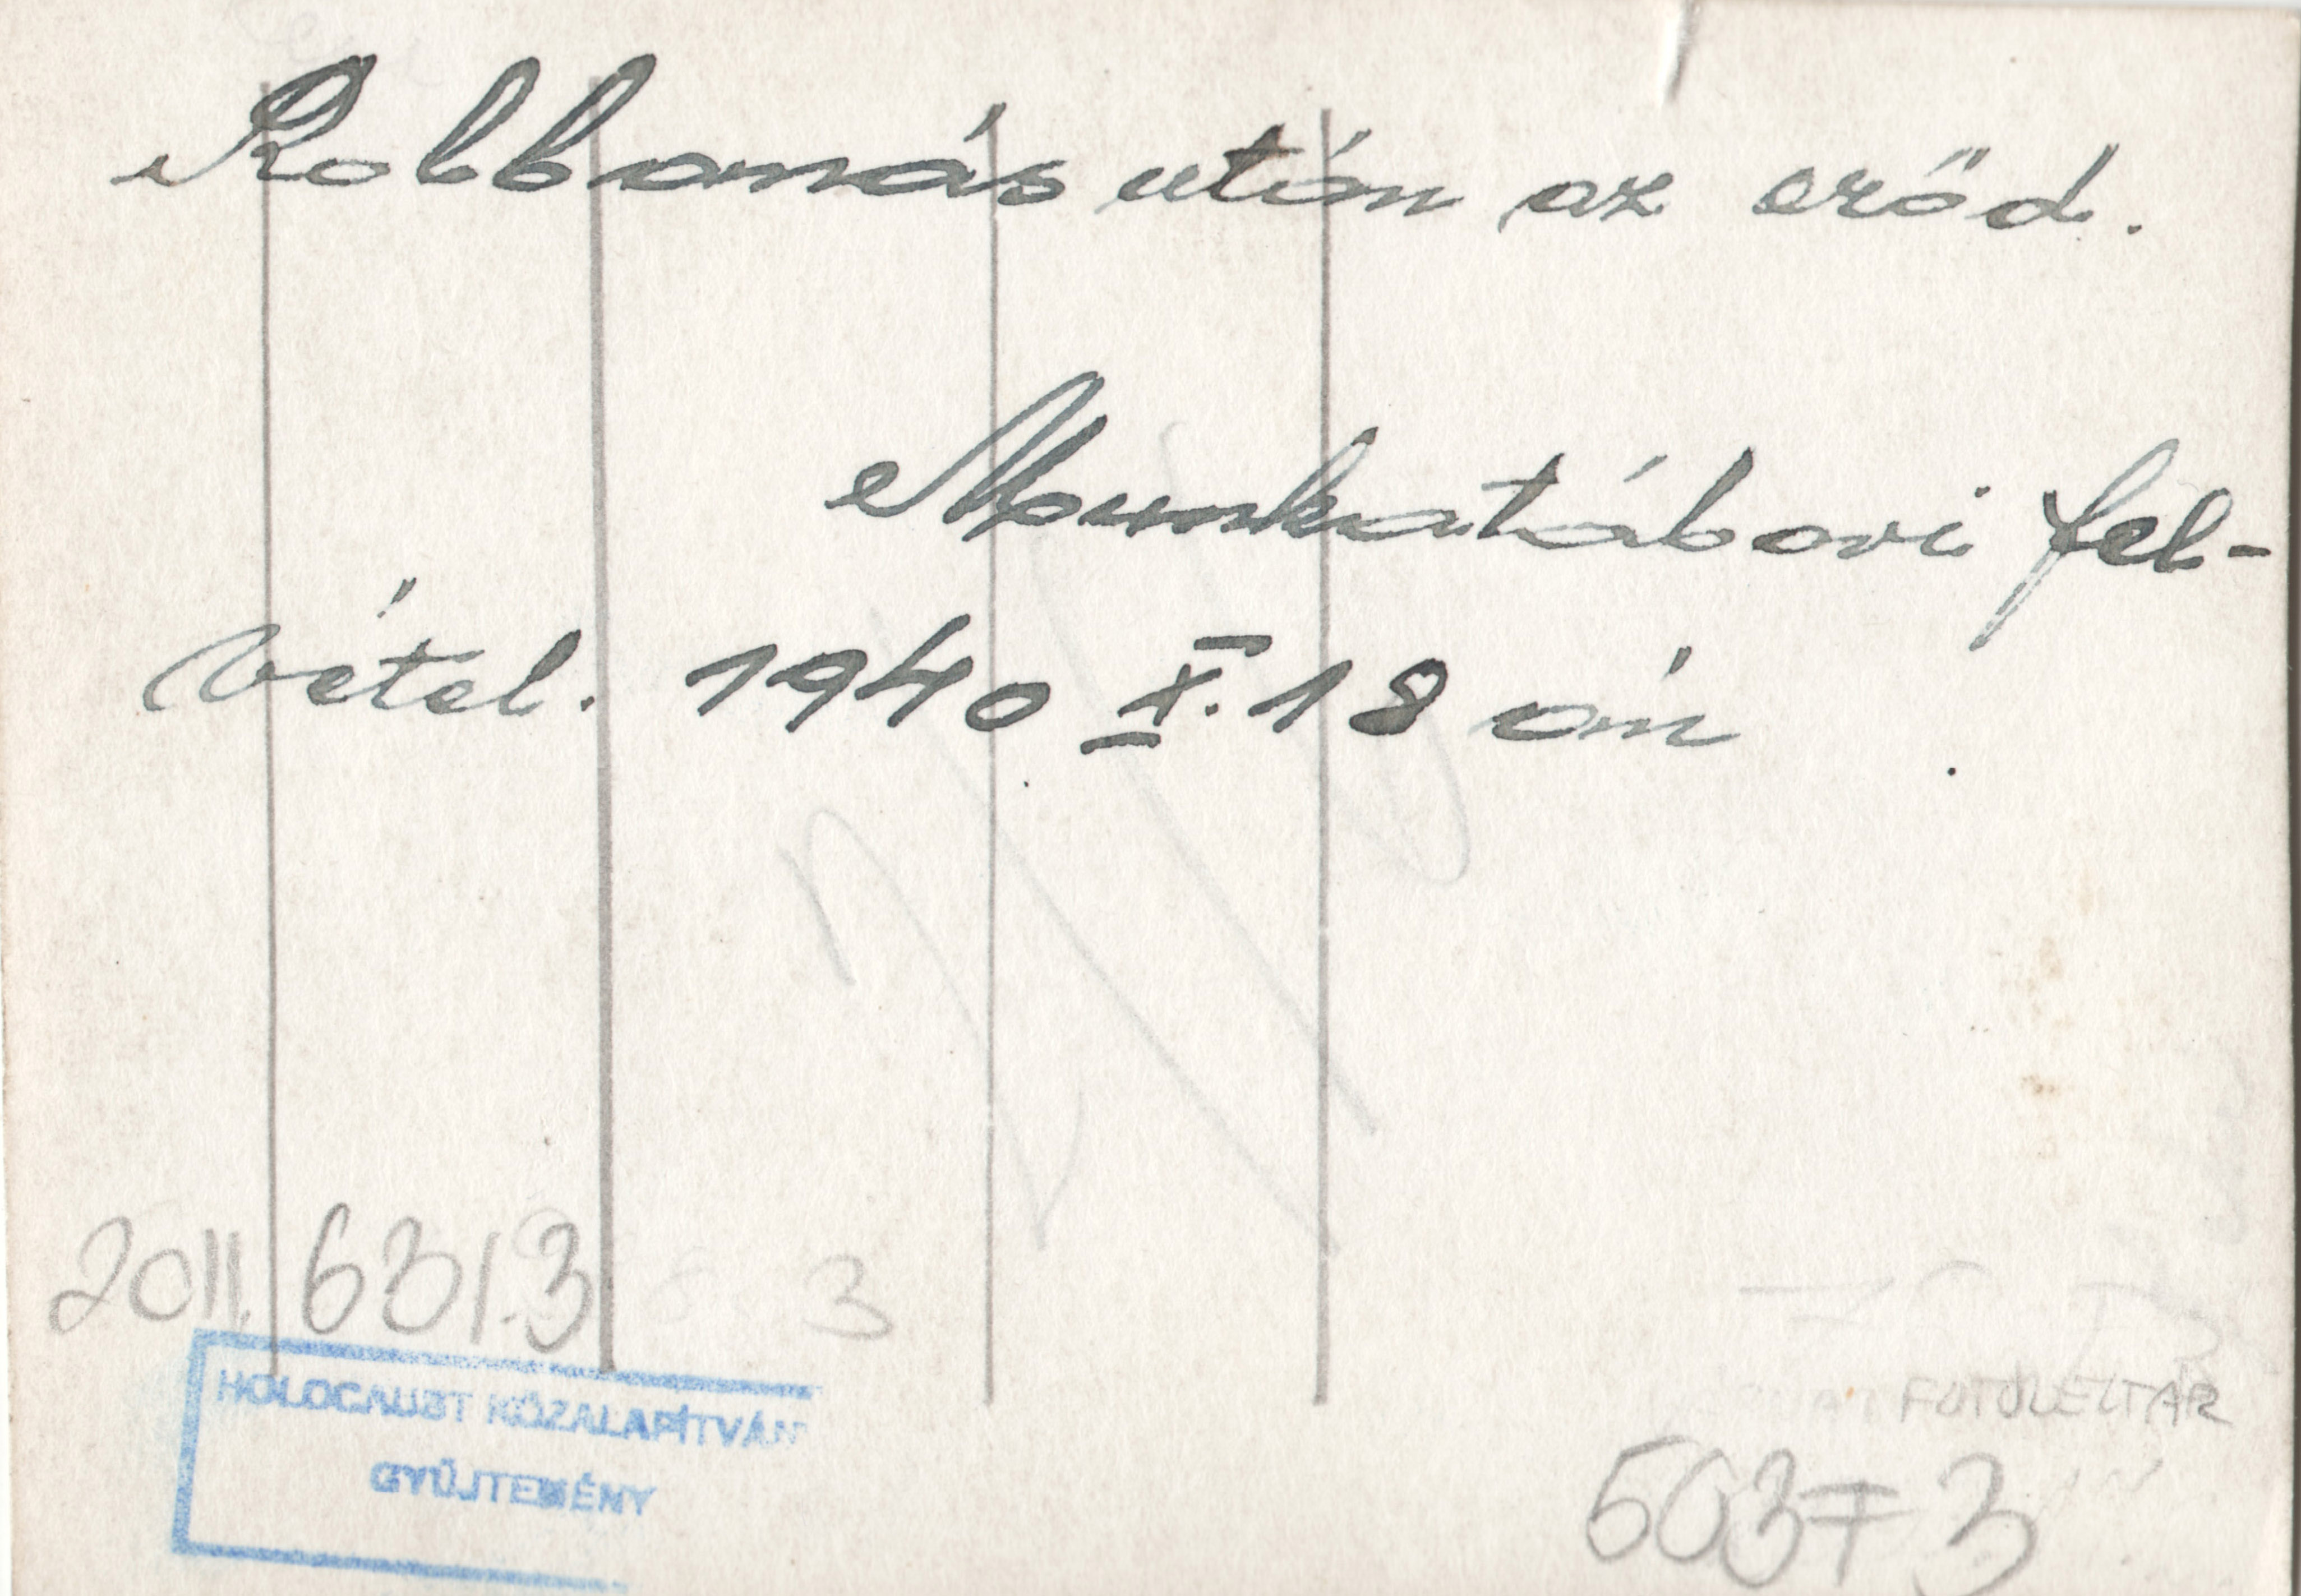 Robbanás után az erőd.
Munkatábori fel-
vétel. 1940 X. 18 án
2011.631.3
3
HOLOCAUST KÖZALAPÍTVÁN
GYŰJTEMÉNY
FOTÓLELTÁR
50373